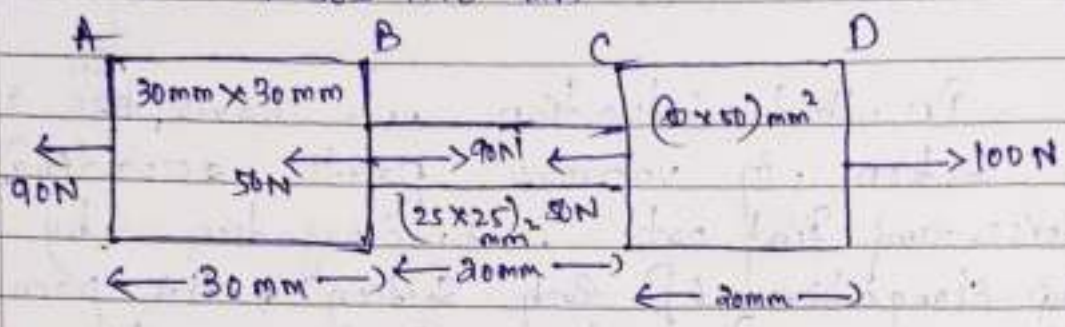 A B C D
30mm x 30mm
(50 x 50) mm²
90N
50N
90N
100 N
(25 x 25) mm²
50N
30 mm
20mm
20mm